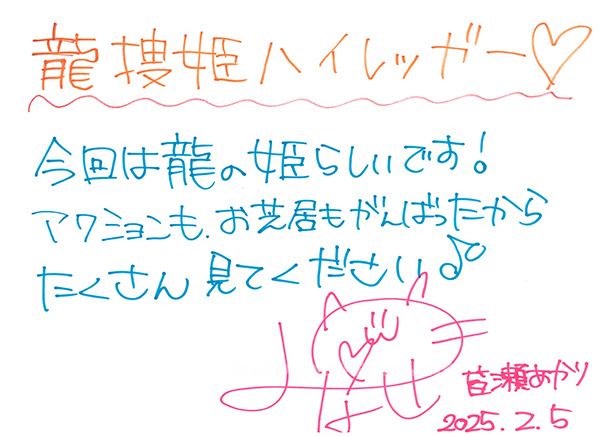 龍捜姫ハイレッガー♡
今回は龍の姫らしいです!
アクションも、お芝居もがんばったから
たくさん見てください♪
皆瀬あかり
2025.2.5